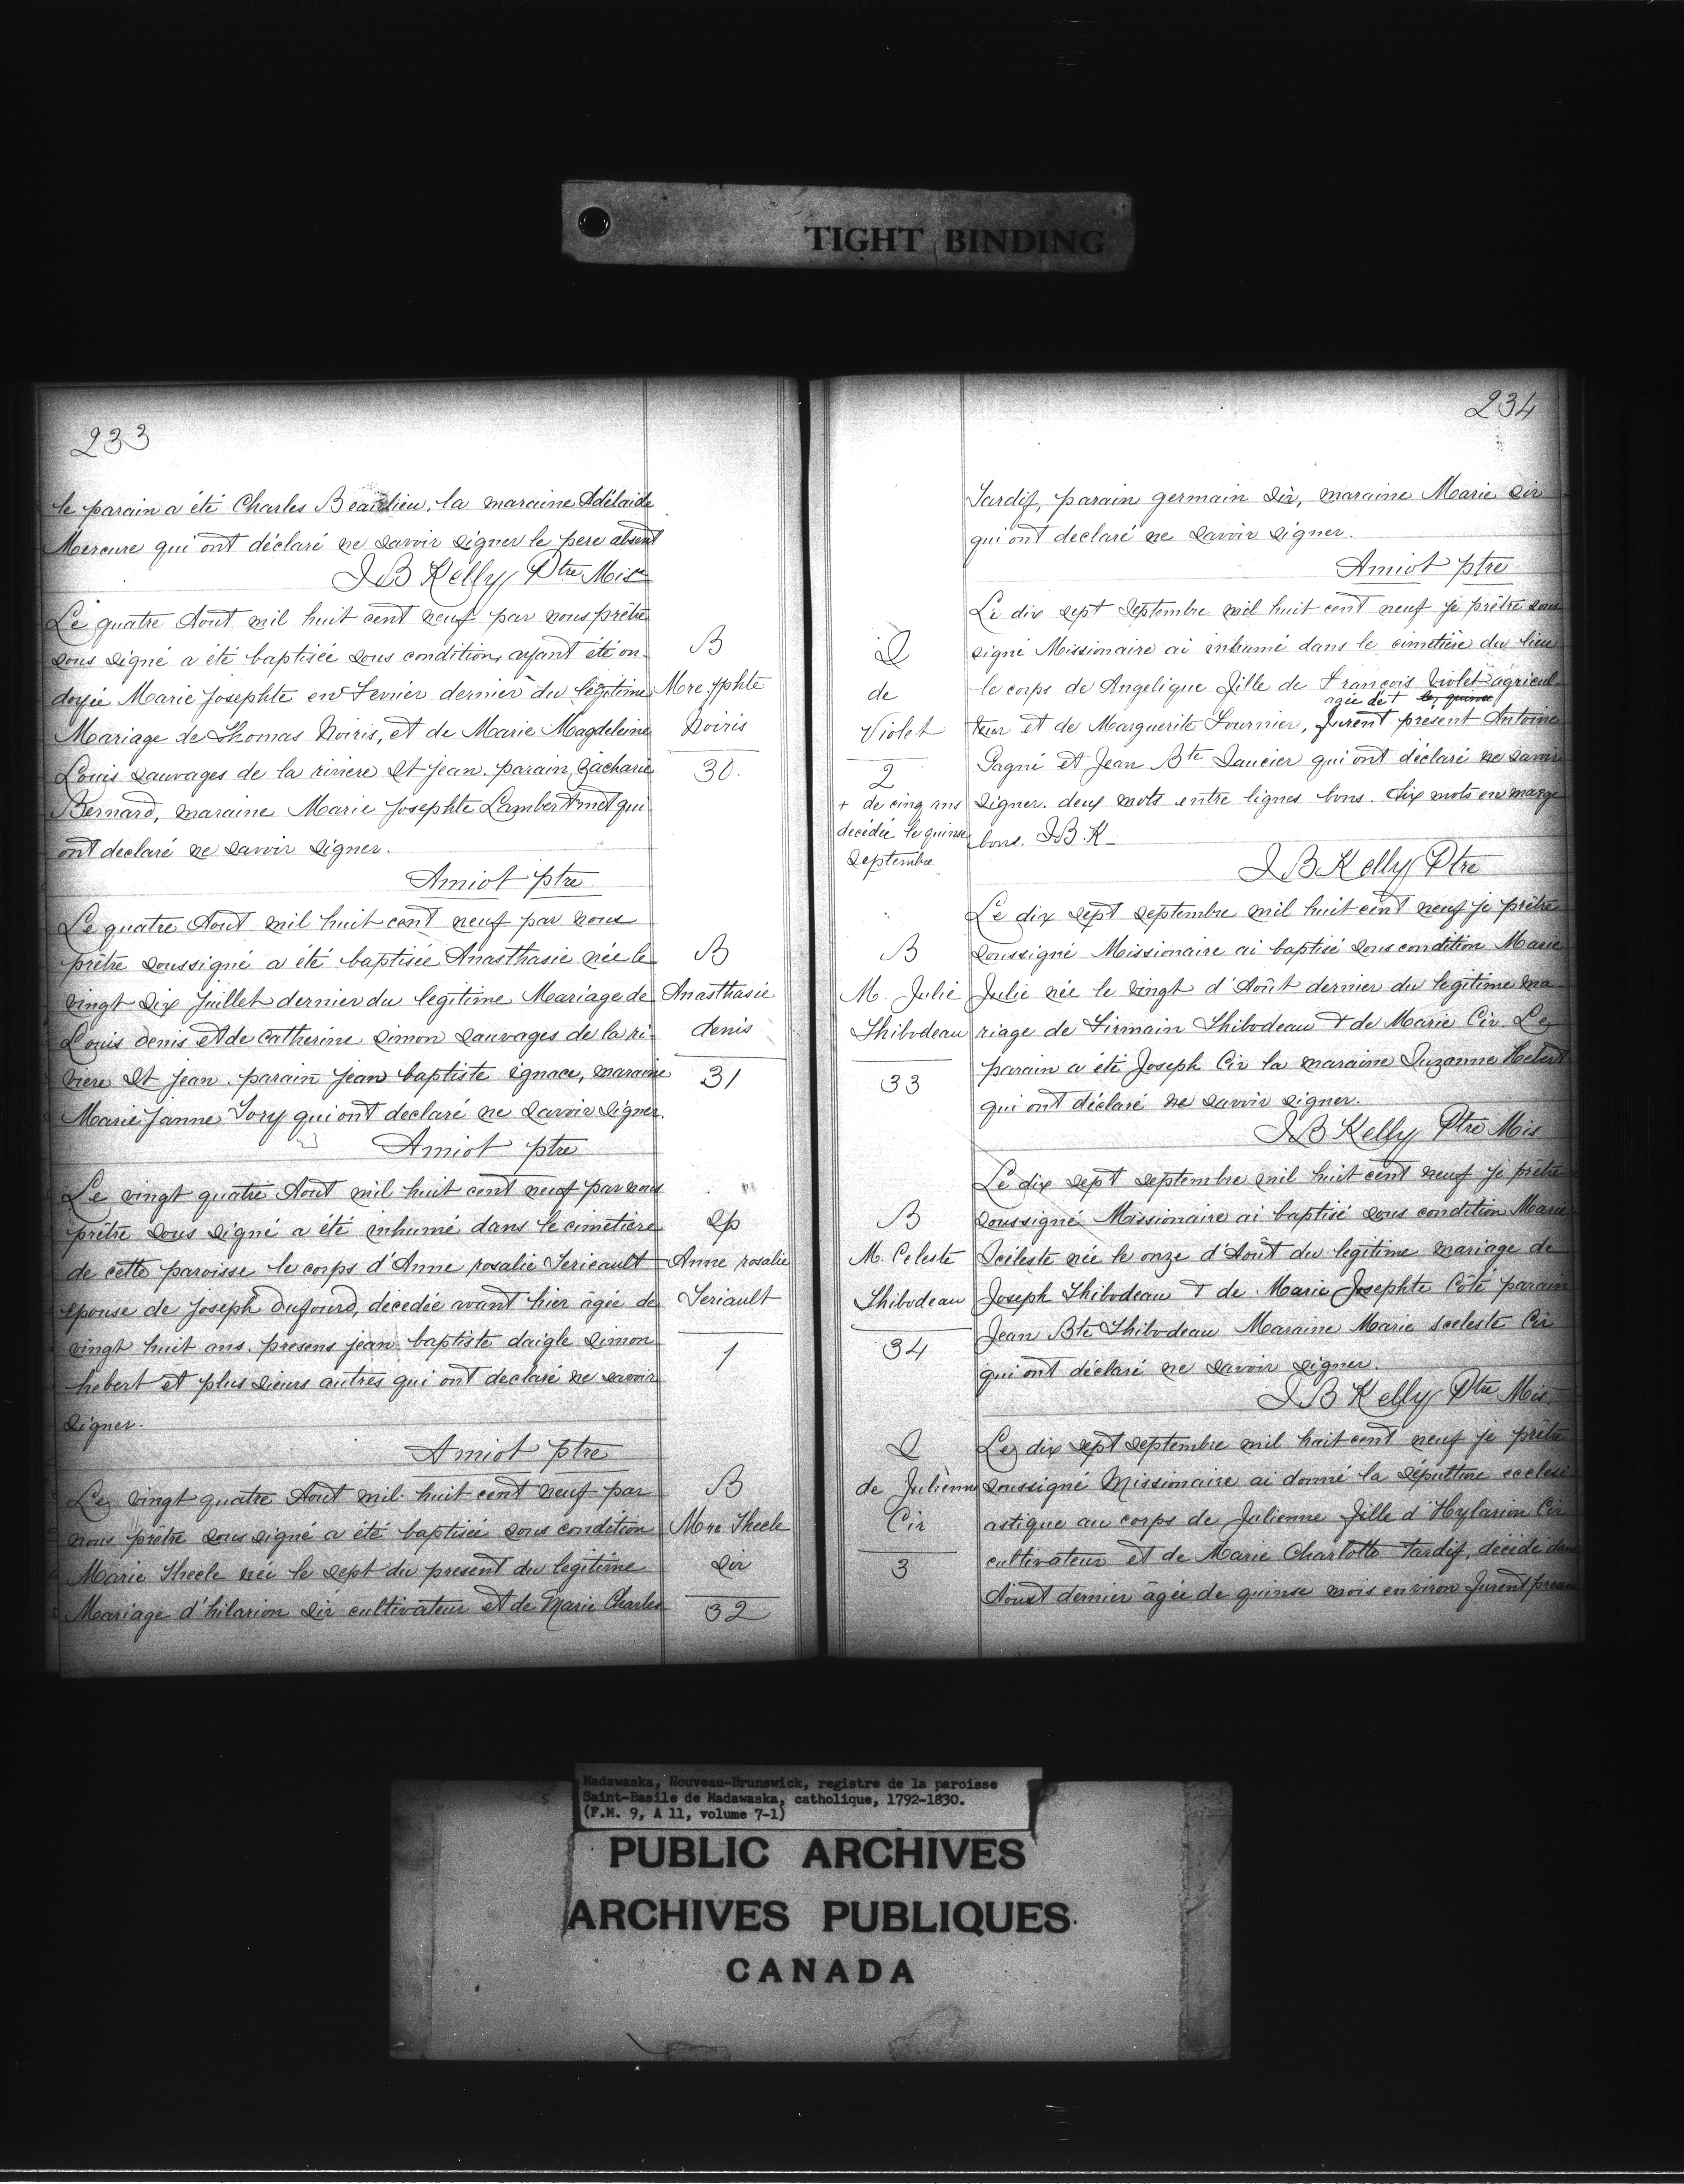 TIGHT BINDING
233
le parain a été Charles Beaulieu, la maraine Adélaide
Mercure qui ont déclaré ne savoir signer le pere absent
J B Kelly Ptre Mis
Le quatre Aout mil huit cent neuf par nous prêtre
sous signé a été baptisée sous condition, ayant été on-
doyée Marie Josephte en Fevrier dernier du légitime
Mariage de Thomas Noiris, et de Marie Magdeleine
Louis sauvages de la riviere St Jean. parain Zacharie
Bernard, maraine Marie Josephte Lambert met qui
ont declaré ne savoir signer.
Amiot ptre
B
Mre Jphte
Noiris
30.
Le quatre Aout mil huit cent neuf par nous
prêtre soussigné a été baptisée Anasthasie née le
vingt six Juillet dernier du legitime Mariage de
Louis denis et de Catherine Simon sauvages de la ri-
viere St Jean. parain Jean baptiste ignace, maraine
Marie Janne Tory qui ont declaré ne savoir signer.
Amiot ptre
B
Anasthasie
denis
31
Le vingt quatre Aout mil huit cent neuf par nous
prêtre sous signé a été inhumé dans le cimetiere
de cette paroisse le corps d'Anne rosalie Terieault
epouse de Joseph Dufourd, décedée avant hier âgée de
vingt huit ans. presens jean baptiste daigle simon
hebert et plus sieurs autres qui ont declaré ne savoir
signer.
Amiot ptre
Sp
Anne rosalie
Teriault
1
Le vingt quatre Aout mil huit cent neuf par
nous prêtre sous signé a été baptisée sous condition
Marie Thecle née le sept du present du legitime
Mariage d'hilarion Sir cultivateur et de Marie Charles
B
Mre Thecle
Sir
32
234
Tardif, parain germain Sir, maraine Marie Sir
qui ont declaré ne savoir signer.
Amiot ptre
Le dix sept Septembre mil huit cent neuf je prêtre sous
signé Missionaire ai inhumé dans le cimetière du lieu
le corps de Angelique fille de François Violet agricul-
agée de + le, quinse
teur et de Marguerite Fournier, furent present Antoine
Gagné et Jean Bte Saucier qui ont déclaré ne savoir
signer. deux mots entre lignes bons. Six mots en marge
bons. J B. K
J B Kelly Ptre
S
de
Violet
2
+ de cinq ans
decédée le quinse
Septembre
Le dix sept septembre mil huit cent neuf je prêtre
soussigné Missionaire ai baptisé sous condition Marie
Julie née le vingt d'Août dernier du legitime ma-
riage de Firmain Thibodeau & de Marie Cir. Le
parain a été Joseph Cir la maraine Suzanne Hebert
qui ont déclaré ne savoir signer.
J B Kelly Ptre Mis
B
M. Julie
Thibodeau
33
Le dix sept septembre mil huit cent neuf je prêtre
soussigné Missionaire ai baptisé sous condition Marie
Scéleste née le onze d'Août du legitime mariage de
Joseph Thibodeau & de Marie Josephte Côté parain
Jean Bte Thibodeau Maraine Marie Sceleste Cir
qui ont déclaré ne savoir signer.
J B Kelly Ptre Mis
B
M. Celeste
Thibodeau
34
Le dix sept septembre mil huit cent neuf je prêtre
soussigné Missionaire ai donné la sépulture ecclesi-
astique au corps de Julienne fille d'Hylarion Cir
cultivateur et de Marie Charlotte Tardif, décédé dans
Aoust dernier âgée de quinse mois environ furent
S
de Julienne
Cir
3
Madawaska, Nouveau-Brunswick, registre de la paroisse
Saint-Basile de Madawaska, catholique, 1792-1830.
(F.M. 9, A 11, volume 7-1)
PUBLIC ARCHIVES
ARCHIVES PUBLIQUES
CANADA